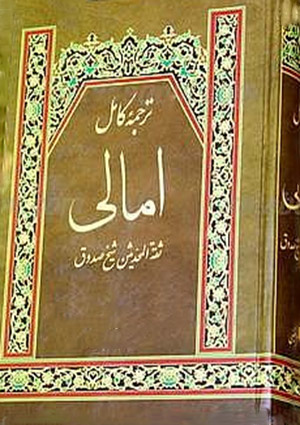 ترجمهٔ کامل
امالی
ثقة المحدثین شیخ صدوق